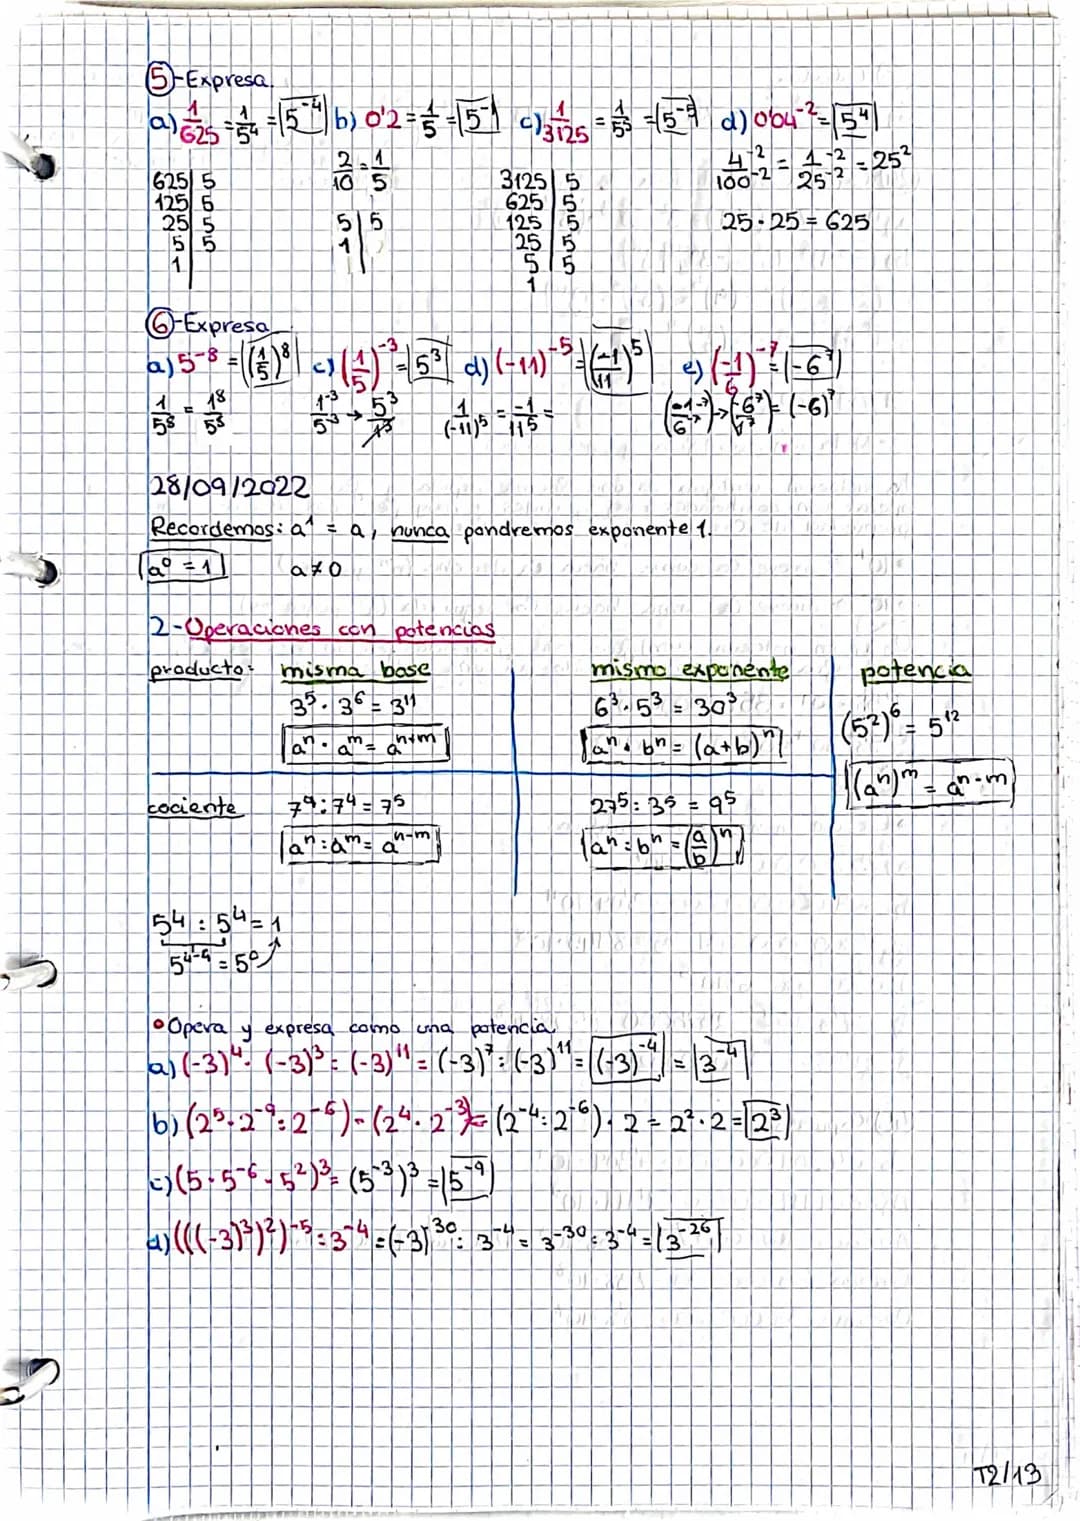 5-Expresa.
a) 1/625 = 1/5⁴ = 5⁻⁴ b) 0'2 = 1/5 = 5⁻¹ c) 1/3125 = 1/5⁵ = 5⁻⁵ d) 0'04⁻² = 5⁴
2/10 = 1/5 4⁻²/100⁻² = 1⁻²/25⁻² = 25²
625 | 5 3125 | 5
125 | 5 625 | 5
25 | 5 5 | 5 125 | 5 25 · 25 = 625
5 | 5 1 | 25 | 5
1 | 5 | 5
1
6-Expresa
a) 5⁻⁸ = (1/5)⁸ c) (1/5)⁻³ = 5³ d) (-11)⁻⁵ = (-1/11)⁵ e) (-1/6)⁻⁷ = -6⁷
1/5⁸ = 1⁸/5⁸ 1⁻³/5⁻³ → 5³/1³ 1/(-11)⁵ = -1/11⁵ = (-1⁻⁷/6⁻⁷) → (-6⁷/1⁷) = (-6)⁷
28/09/2022
Recordemos: a¹ = a, nunca pondremos exponente 1.
a⁰ = 1 a ≠ 0
2-Operaciones con potencias
producto: misma base mismo exponente potencia
3⁵ · 3⁶ = 3¹¹ 6³ · 5³ = 30³ (5²)⁶ = 5¹²
aⁿ · aᵐ = aⁿ⁺ᵐ aⁿ · bⁿ = (a+b)ⁿ (aⁿ)ᵐ = aⁿ·ᵐ
cociente 7⁹ : 7⁴ = 7⁵ 27⁵ : 3⁵ = 9⁵
aⁿ : aᵐ = aⁿ⁻ᵐ aⁿ : bⁿ = (a/b)ⁿ
5⁴ : 5⁴ = 1
5⁴⁻⁴ = 5⁰
•Opera y expresa como una potencia.
a) (-3)⁴ · (-3)³ : (-3)¹¹ = (-3)⁷ : (-3)¹¹ = (-3)⁻⁴ = 3⁻⁴
b) (2⁵ · 2⁻⁹ : 2⁻⁶) · (2⁴ · 2⁻³) = (2⁻⁴ : 2⁻⁶) · 2 = 2² · 2 = 2³
c) (5 · 5⁻⁶ · 5²)³ = (5⁻³)³ = 5⁻⁹
d) (((-3)³)²)⁻⁵ : 3⁻⁴ = (-3)⁻³⁰ : 3⁻⁴ = 3⁻³⁰ : 3⁻⁴ = 3⁻²⁶
T2/13